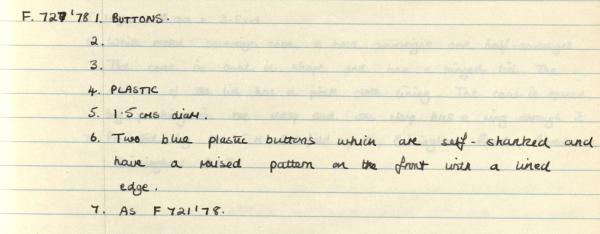 F. 727'78 1. BUTTONS.
2.
3.
4. PLASTIC
5. 1.5 cms diam.
6. Two blue plastic buttons which are self-shanked and
have a raised pattern on the front with a lined
edge.
7. As F 721'78.